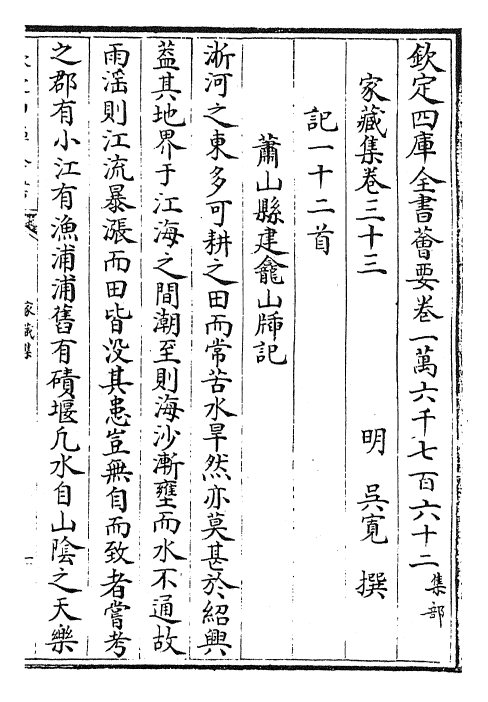 欽定四庫全書薈要卷一萬六千七百六十二 集部
家藏集卷三十三 明 吳寛 撰
記一十二首
蕭山縣建龕山牐記
淛河之東多可耕之田而常苦水旱然亦莫甚於紹興
葢其地界于江海之間潮至則海沙漸壅而水不通故
雨滛則江流暴漲而田皆没其患豈無自而致者嘗考
之郡有小江有漁浦浦舊有磧堰凢水自山陰之天樂
家藏集